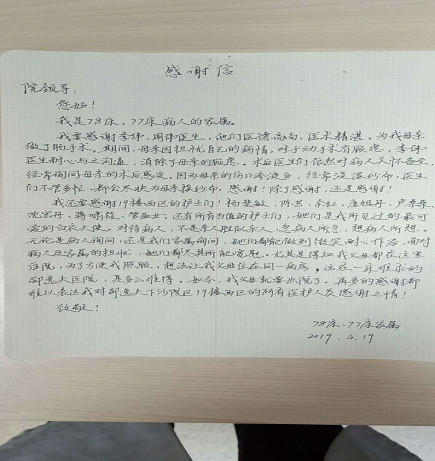 感谢信
院领导:
您好!
我是78床、77床病人的家属。
我要感谢李伟、周伟医生,他们医德高尚、医术精湛。为我母亲
做了肠手术。期间,母亲因担忧自己的病情,对于动手术有顾虑,李伟
医生耐心与之沟通,消除了母亲的顾虑。术后医生们依然对病人关怀备至,
经常询问母亲的术后感受,因为母亲的伤口渗液多,经常浸湿纱布,医生
们不管多忙,都会及时为母亲换纱布,感谢!除了感谢,还是感谢!
我还要感谢19楼西区的护士们!杨
还有所有当值的护士们,她们是我所见过的最可
爱的白衣天使。对待病人,不是亲人胜似亲人,急病人所急,想病人所想。
无论是病人询问,还是我们家属询问,她们都能做到细致耐心作答,面对
病人及家属的担忧,她们都尽其所能宽慰。尤其是得知我父母都在这里
住院,为了方便我照顾,想办法让我父母住在同一病房。这在一床难求的
邵逸夫医院,是多么难得。如今,我父母就要出院了。再多的感谢都
难以表达我对邵逸夫下沙院区19楼西区的所有医护人员感谢之情!
致敬!
78床、77床家属
2019.6.19